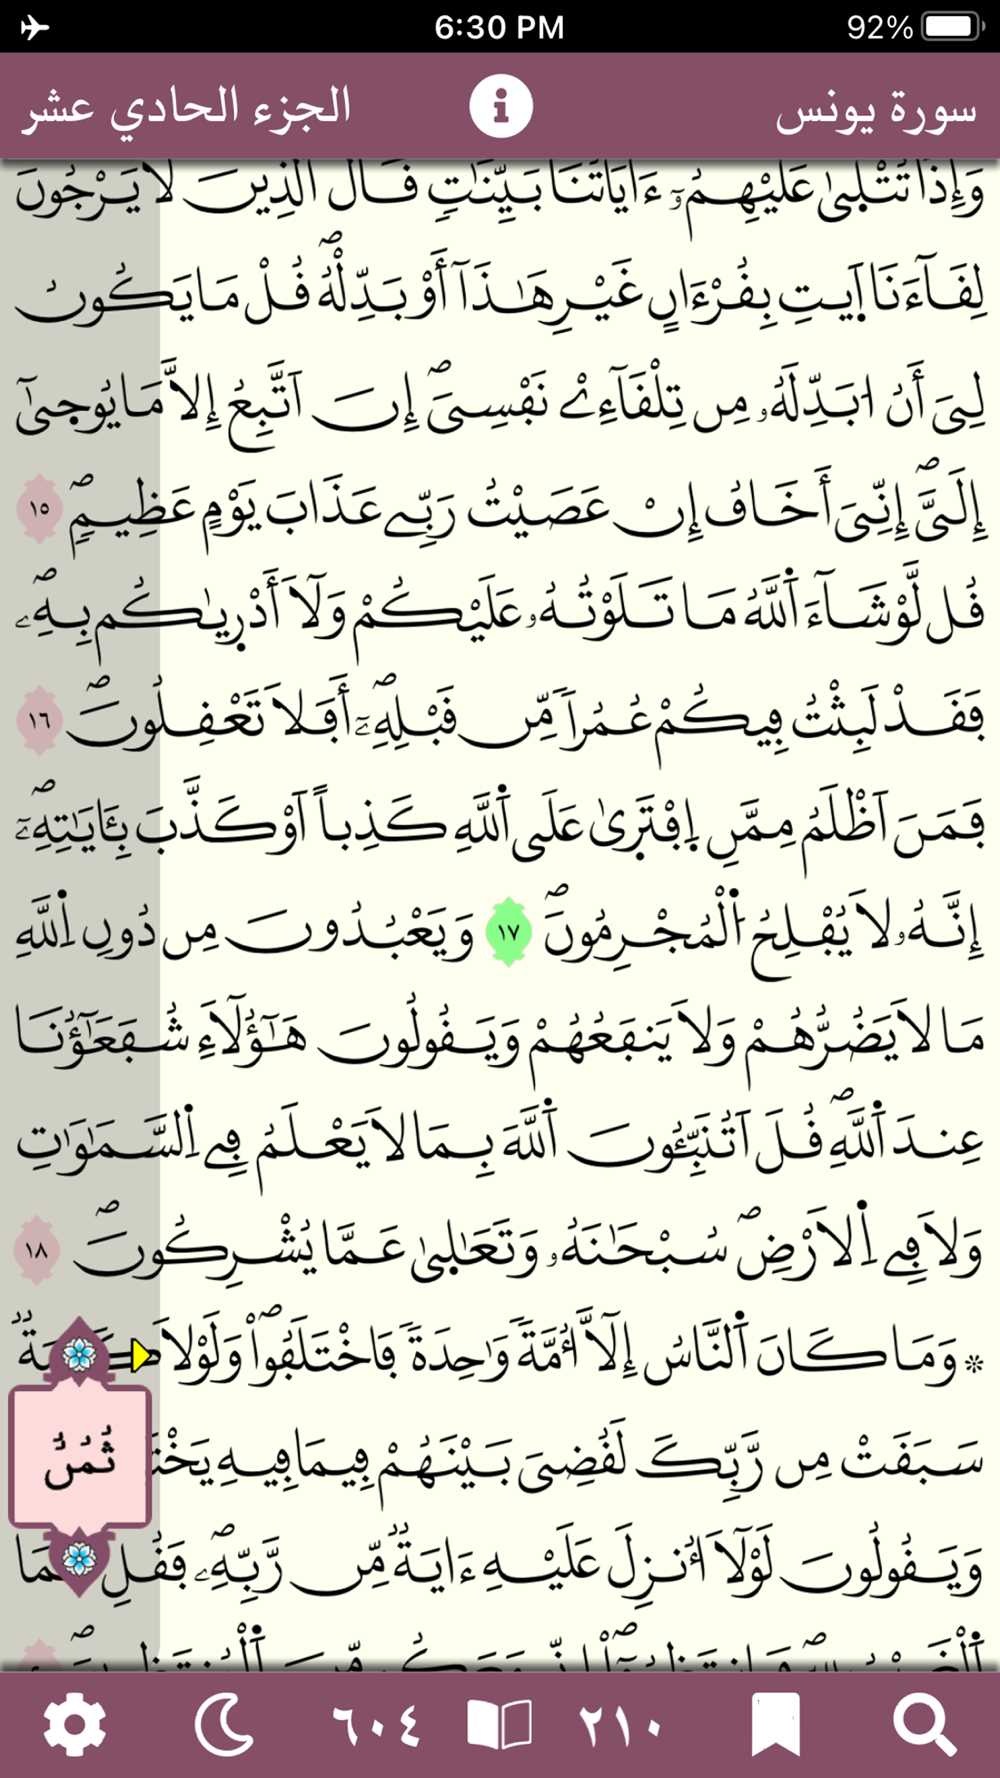 6:30 PM
92%
سورة يونس
الجزء الحادي عشر
وَإِذَا تُتْلَىٰ عَلَيْهِمُۥٓ ءَايَاتُنَا بَيِّنَٰتٖ قَالَ ٱلذِينَ لَا يَرْجُونَ
لِقَآءَنَا ٱيتِ بِقُرْءَانٍ غَيْرِ هَٰذَآ أَوْ بَدِّلْهُۖ قُلْ مَا يَكُونُ
لِيَ أَنُ ابَدِّلَهُۥ مِن تِلْقَآءِےْ نَفْسِيَۖ إِنَ اَتَّبِعُ إِلَّا مَا يُوحَىٰٓ
إِلَيَّۖ إِنِّيَ أَخَافُ إِنْ عَصَيْتُ رَبِّے عَذَابَ يَوْمٍ عَظِيمٖۖ ١٥
قُل لَّوْ شَآءَ ٱللَّهُ مَا تَلَوْتُهُۥ عَلَيْكُمْ وَلَآ أَدْر۪يٰكُم بِهِۦۖ
فَقَدْ لَبِثْتُ فِيكُمْ عُمُراٗ مِّن قَبْلِهِۦٓۖ أَفَلَا تَعْقِلُونَۖ ١٦
فَمَنَ اَظْلَمُ مِمَّنِ اِفْتَر۪يٰ عَلَى ٱللَّهِ كَذِباً اَوْ كَذَّبَ بِـَٔايَٰتِهِۦٓۖ
إِنَّهُۥ لَا يُفْلِحُ ٱلْمُجْرِمُونَۖ ١٧ وَيَعْبُدُونَ مِن دُونِ اِللَّهِ
مَا لَا يَضُرُّهُمْ وَلَا يَنفَعُهُمْ وَيَقُولُونَ هَٰٓؤُلَآءِ شُفَعَٰٓؤُنَا
عِندَ ٱللَّهِۖ قُلَ اَتُنَبِّـُٔونَ ٱللَّهَ بِمَا لَا يَعْلَمُ فِے اِلسَّمَٰوَٰتِ
وَلَا فِے اِلَارْضِۖ سُبْحَٰنَهُۥ وَتَعَٰلَىٰ عَمَّا يُشْرِكُونَۖ ١٨
۞ وَمَا كَانَ ٱلنَّاسُ إِلَّآ أُمَّةٗ وَٰحِدَةٗ فَاخْتَلَفُواْۖ وَلَوْلَا
سَبَقَتْ مِن رَّبِّكَ لَقُضِيَ بَيْنَهُمْ فِيمَا فِيهِ
وَيَقُولُونَ لَوْلَآ أُنزِلَ عَلَيْهِ ءَايَةٞ مِّن رَّبِّهِۦۖ فَقُلِ
ثُمُنٌ
٦٠٤
٢١٠